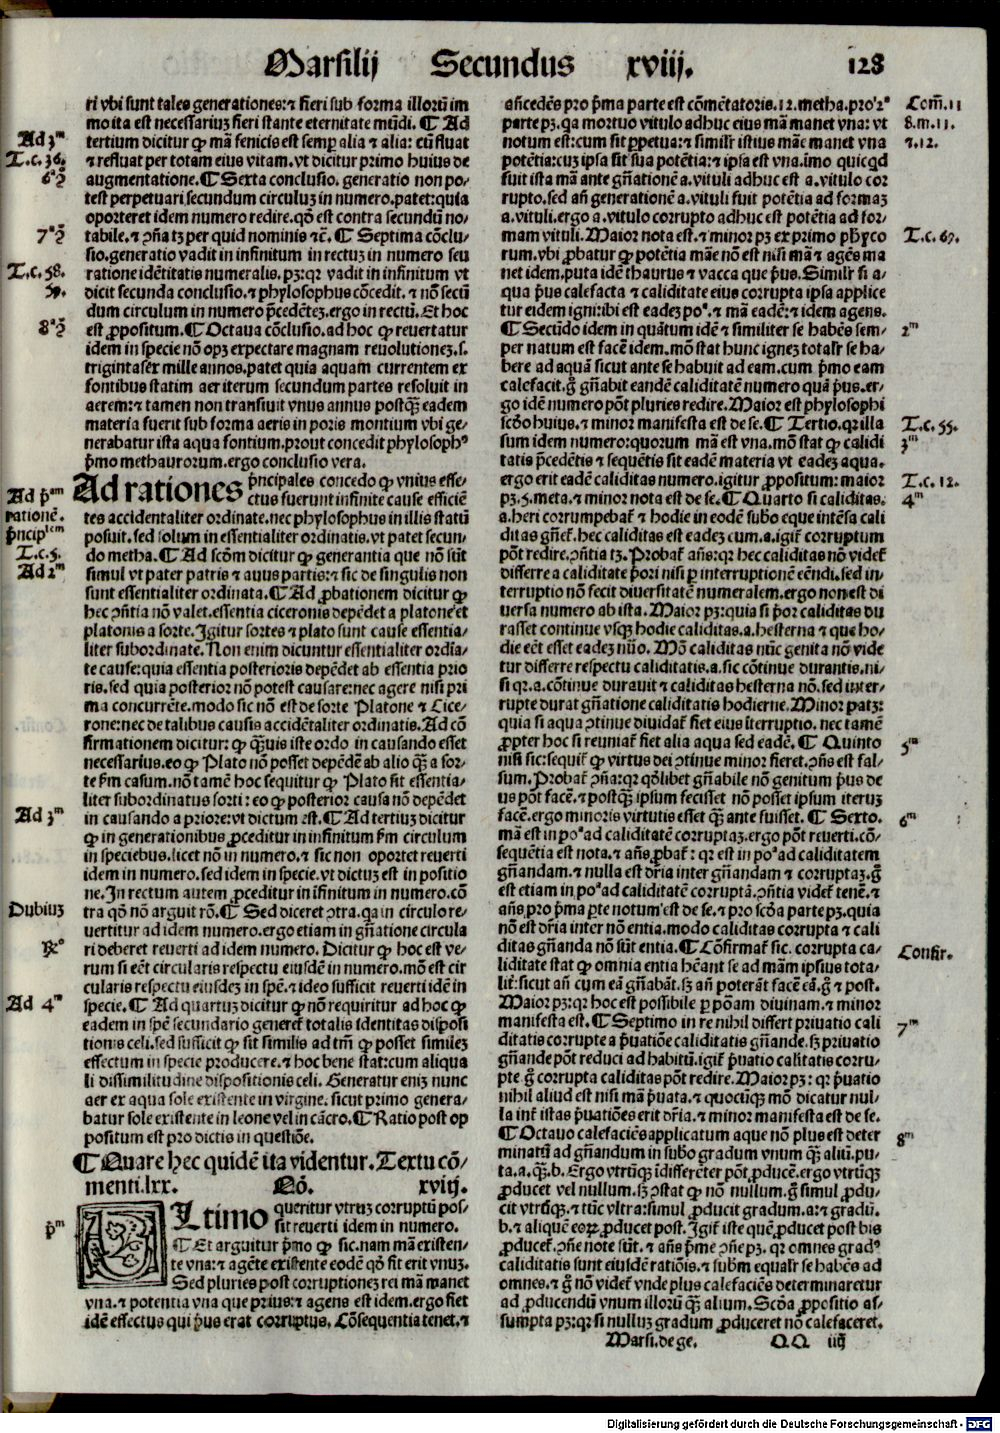 Marsilij Secundus xviij. 128
ri vbi sunt tales generationes:⁊ fieri sub forma illorū im
mo ita est necessariuꝫ fieri stante eternitate mūdi. ¶ Ad
tertium dicitur ꝙ mā fenicis est semꝑ alia ⁊ alia: cū fluat
⁊ refluat per totam eius vitam. vt dicitur primo huius de
augmentatione. ¶ Sexta conclusio. generatio non po-
test perpetuari secundum circuluꝫ in numero. patet: quia
oporteret idem numero redire. qō est contra secundū no-
tabile. ⁊ ꝯñia tꝫ per quid nominis ⁊c̄. ¶ Septima cōclu-
sio. generatio vadit in infinitum in rectuꝫ in numero seu
ratione idētitatis numeralis. pꝫ: qꝛ vadit in infinitum vt
dicit secunda conclusio. ⁊ phylosophus cōcedit. ⁊ nō secū
dum circulum in numero p̄cedēteꝫ. ergo in rectū. Et hoc
est ꝓpositum. ¶ Octaua cōclusio. ad hoc ꝙ reuertatur
idem in specie nō opꝫ expectare magnam reuolutioneꝫ. s.
trigintasex mille annos. patet quia aquam currentem ex
fontibus statim aer iterum secundum partes resoluit in
aerem: ⁊ tamen non transiuit vnus annus postꝙ̄ eadem
materia fuerit sub forma aeris in poris montium vbi ge-
nerabatur ista aqua fontium. prout concedit phylosophꝰ
p̄mo methaurorum. ergo conclusio vera.
Ad rationes p̄ncipales concedo ꝙ vnius effe-
ctus fuerunt infinite cause efficiē
tes accidentaliter ordinate. nec phylosophus in illis statū
posuit. sed solum in essentialiter ordinatis. vt patet secun-
do metha. ¶ Ad scōm dicitur ꝙ generantia que nō sūt
simul vt pater patris ⁊ auus partis: ⁊ sic de singulis non
sunt essentialiter ordinata. ¶ Ad ꝓbationem dicitur ꝙ
hec ꝯñtia nō valet. essentia ciceronis depēdet a platone et
platonis a sorte. Igitur sortes ⁊ plato sunt cause essentia-
liter subordinate. Non enim dicuntur essentialiter ordia-
te cause: quia essentia posterioris depēdet ab essentia prio
ris. sed quia posterior nō potest causare: nec agere nisi pri
ma concurrēte. modo sic nō est de sorte Platone ⁊ Cice-
rone: nec de talibus causis accidētaliter ordinatis. Ad cō
firmationem dicitur: ꝙ ꝙ̄uis iste ordo in causando esset
necessarius. eo ꝙ Plato nō posset depēdē ab alio ꝙ̄ a sor-
te ẜm casum. nō tamē hoc sequitur ꝙ Plato sit essentia-
liter subordinatus sorti: eo ꝙ posterior causa nō depēdet
in causando a priore: vt dictum est. ¶ Ad tertiuꝫ dicitur
ꝙ in generationibus ꝓceditur in infinitum ẜm circulum
in speciebus. licet nō in numero. ⁊ sic non oportet reuerti
idem in numero. sed idem in specie. vt dictuꝫ est in positio
ne. In rectum autem ꝓceditur in īfinitum in numero. cō
tra qō nō arguit rō. ¶ Sed diceret ꝯtra. qa in circulo re-
uertitur ad idem numero. ergo etiam in gn̄atione circula
ri deberet reuerti ad idem numero. Dicitur ꝙ hoc est ve-
rum si eēt circularis respectu eiusdē in numero. mō est cir
cularis respectu eiusdeꝫ in spē. ⁊ ideo sufficit reuerti idē in
specie. ¶ Ad quartuꝫ dicitur ꝙ nō requiritur ad hoc ꝙ
eadem in spē secundario generet̄ totalis identitas disposi
tionis celi. sed sufficit ꝙ sit similis ad tm̄ ꝙ posset simileꝫ
effectum in specie producere. ⁊ hoc bene stat: cum aliqua
li dissimilitudine dispositionis celi. Generatur eniꝫ nunc
aer ex aqua sole existente in virgine. sicut primo genera-
batur sole existente in leone vel in cācro. ¶ Ratio post op
positum est pro dictis in questiōe.
¶ Quare hec quidē ita videntur. Textu cō-
menti. lxx. Qō. xviij.
VLtimo queritur vtruꝫ corruptū pos-
sit reuerti idem in numero.
¶ Et arguitur p̄mo ꝙ sic. nam mā existen-
te vna: ⁊ agēte existente eodē qō sit erit vnuꝫ.
Sed pluries post corruptioneꝫ rei mā manet
vna. ⁊ potentia vna que prius: ⁊ agens est idem. ergo fiet
idē effectus qui p̄us erat corruptus. Cōsequentia tenet. ⁊
Ad 3ᵐ
T.c.36.
6ᵃ ꝯ̄
7ᵃ ꝯ̄
T.c.58.
59.
8ᵃ ꝯ̄
Ad p̄ᵃᵐ
rationē.
p̄nciplᵉᵐ
T.c.5.
Ad 2ᵐ
Ad 3ᵐ
Dubiuꝫ
℞ᵒ
Ad 4ᵐ
p̄ᵐ
añcedēs pro p̄ma parte est cōmētatoris. 12. metha. pro 2ᵃ
parte pꝫ. qa mortuo vitulo adhuc eius mā manet vna: vt
notum est: cum sit ꝑpetua: ⁊ similr̄ istius māe manet vna
potētia: cuꝫ ipsa sit sua potētia: ⁊ ipsa est vna. īmo quicqd
fuit ista mā ante gn̄ationē a. vituli adhuc est a. vitulo cor
rupto. sed añ generationē a. vituli fuit potētia ad formaꝫ
a. vituli. ergo a. vitulo corrupto adhuc est potētia ad for-
mam vituli. Maior nota est. ⁊ minor pꝫ ex primo phyco
rum. vbi ꝓbatur ꝙ potētia māe nō est nisi mā ⁊ agēs ma
net idem. puta idē thaurus ⁊ vacca que p̄us. Similr̄ si a-
qua p̄us calefacta ⁊ caliditate eius corrupta ipsa applice
tur eidem igni: ibi est eadeꝫ poᵃ. ⁊ mā eadē: ⁊ idem agens.
¶ Secūdo idem in quātum idē ⁊ similiter se habēs sem-
per natum est facē idem. mō stat hunc igneꝫ totalr̄ se ha-
bere ad aquā sicut ante se habuit ad eam. cum p̄mo eam
calefacit. g̃ gn̄abit eandē caliditatē numero quā p̄us. er-
go idē numero pōt pluries redire. Maior est phylosophi
scōo huius. ⁊ minor manifesta est de se. ¶ Tertio. qꝛ illa
sum idem numero: quorum mā est vna. mō stat ꝙ calidi
tatis p̄cedētis ⁊ sequētis sit eadē materia vt eadeꝫ aqua.
ergo erit eadē caliditas numero. igitur ꝓpositum: maior
pꝫ. 5. meta. ⁊ minor nota est de se. ¶ Quarto si caliditas.
a. heri corrumpebat̄ ⁊ hodie in eodē subo eque intēsa cali
ditas gn̄et̄. hec caliditas est eadeꝫ cum. a. igit̄ corruptum
pōt redire. ꝯñtia tꝫ. Probat̄ añs: qꝛ hec caliditas nō videt̄
differre a caliditate p̄ori nisi ꝑ interruptionē eēndi. sed in-
terruptio nō fecit diuersitatē numeralem. ergo non est di
uersa numero ab ista. Maior pꝫ: quia si p̄or caliditas du
rasset continue vsqꝫ hodie caliditas. a. hesterna ⁊ que ho-
die eēt esset eadeꝫ nūo. Mō caliditas nūc genita nō vide
tur differre respectu caliditatis. a. sic cōtinue durantis. ni-
si qꝛ. a. cōtinue durauit ⁊ caliditas hesterna nō. sed inter-
rupte durat gn̄atione caliditatis hodierne. Minor patꝫ:
quia si aqua ꝯtinue diuidat̄ fiet eius īterruptio. nec tamē
ꝓpter hoc si reuniat̄ fiet alia aqua sed eadē. ¶ Quinto
nisi sic: sequit̄ ꝙ virtus dei ꝯtinue minor fieret. ꝯñs est fal-
sum. Probat̄ ꝯña: qꝛ qōlibet gn̄abile nō genitum p̄us de
us pōt facē. ⁊ postꝙ̄ ipsum fecisset nō posset ipsum iteruꝫ
facē. ergo minoris virtutis esset ꝙ̄ ante fuisset. ¶ Sexto.
mā est in poᵃ ad caliditatē corruptaꝫ. ergo pōt reuerti. cō-
sequētia est nota. ⁊ añs ꝓbat̄: qꝛ est in poᵃ ad caliditatem
gn̄andam. ⁊ nulla est dr̄ia inter gn̄andam ⁊ corruptaꝫ. g̃
est etiam in poᵃ ad caliditatē corruptā. ꝯñtia videt̄ tenē. ⁊
añs. pro p̄ma ꝑte notum est de se. ⁊ pro scōa parte pꝫ. quia
nō est dr̄ia inter nō entia. modo caliditas corrupta ⁊ cali
ditas gn̄anda nō sūt entia. ¶ Cōfirmat̄ sic. corrupta ca-
liditate stat ꝙ omnia entia hēant se ad mām ipsius tota-
lit̄: sicut añ cum eā gn̄abāt. sꝫ añ poterāt facē eā. g̃ ⁊ post.
Maior pꝫ: qꝛ hoc est possibile ꝑ pōam diuinam. ⁊ minor
manifesta est. ¶ Septimo in re nihil differt priuatio cali
ditatis corrupte a p̄uatiōe caliditatis gn̄ande. sꝫ priuatio
gn̄ande pōt reduci ad habitū. igit̄ p̄uatio calitatis corru-
pte g̃ corrupta caliditas pōt redire. Maior pꝫ: qꝛ p̄uatio
nihil aliud est nisi mā p̄uata. ⁊ quocūqꝫ mō dicatur nul-
la int̄ istas p̄uatiōes erit dr̄ia. ⁊ minor manifesta est de se.
¶ Octauo calefaciēs applicatum aque nō plus est deter
minatū ad gn̄andum in subo gradum vnum ꝙ̄ aliū. pu-
ta. a. ꝙ̄. b. Ergo vtrūqꝫ īdifferēter pōt ꝓducē. ergo vtrūqꝫ
ꝓducet vel nullum. sꝫ ꝯstat ꝙ nō nullum. g̃ simul ꝓdu-
cit vtrūqꝫ. ⁊ tūc vltra: simul ꝓducit gradum. a: ⁊ gradū.
b. ⁊ aliquē eoꝝ ꝓducet post. Igit̄ iste quē ꝓducet post bis
ꝓducet̄. ꝯñe note sūt. ⁊ añs p̄me ꝯñe pꝫ. qꝛ omnes gradꝰ
caliditatis sunt eiusdē ratiōis. ⁊ subm̄ equalr̄ se habēs ad
omnes. ⁊ g̃ nō videt̄ vnde plus calefaciēs determinaretur
ad ꝓducendū vnum illorū ꝙ̄ alium. Scōa ꝓpositio as-
sumpta pꝫ: qꝛ si nulluꝫ gradum ꝓduceret nō calefaceret.
Com̄. 11
8. m. 11.
⁊. 12.
T.c. 67.
2ᵐ
T.c. 55.
3ᵐ
T.c. 12.
4ᵐ
5ᵐ
6ᵐ
Confir.
7ᵐ
8ᵐ
Marsi. de ge. QQ iiij
Digitalisierung gefördert durch die Deutsche Forschungsgemeinschaft - DFG